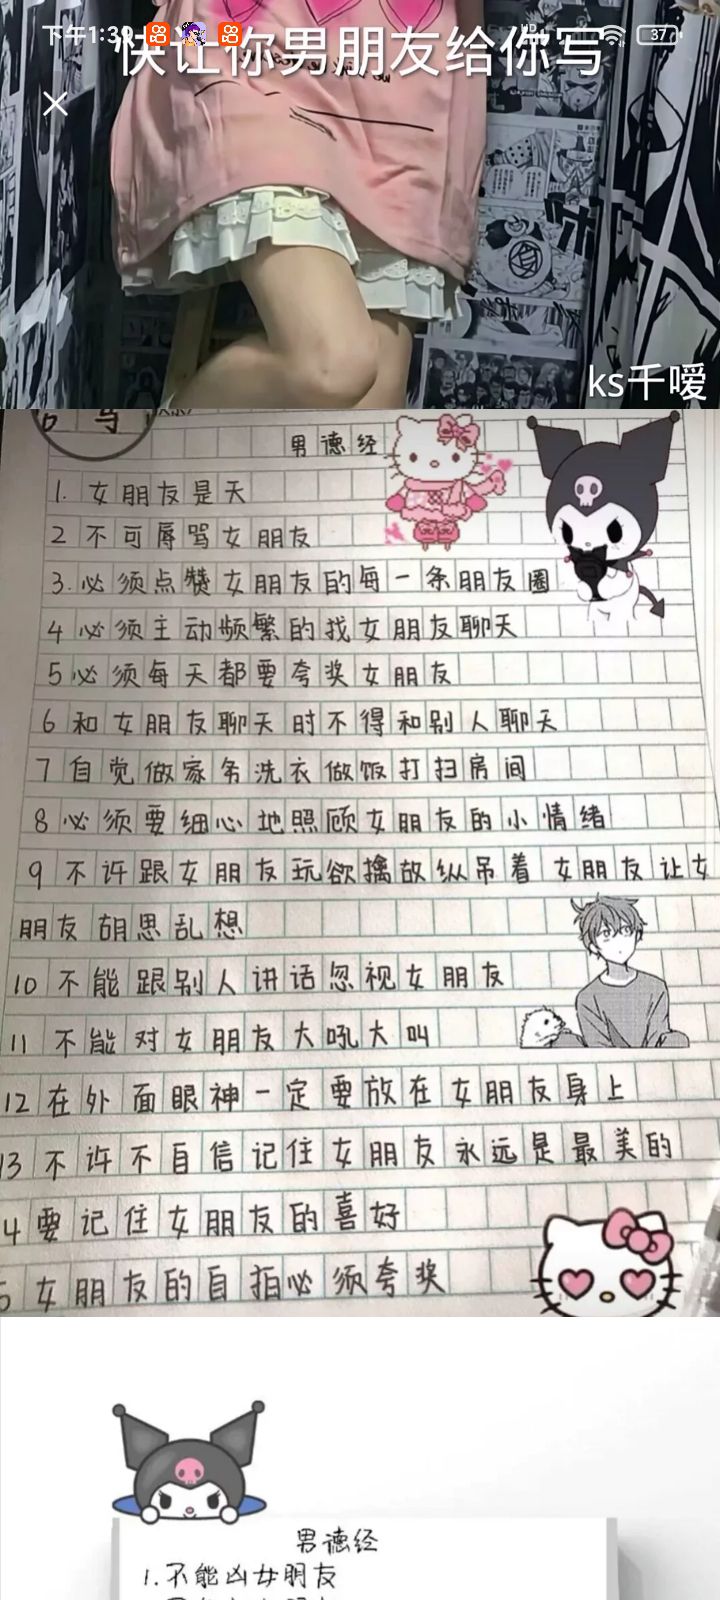 下午1:39
37
快让你男朋友给你写
ks千嗳
写
男德经
1. 女朋友是天
2 不可辱骂女朋友
3.必须点赞女朋友的每一条朋友圈
4 必须主动频繁的找女朋友聊天
5 必须每天都要夸奖女朋友
6 和女朋友聊天时不得和别人聊天
7 自觉做家务洗衣做饭打扫房间
8 必须要细心地照顾女朋友的小情绪
9 不许跟女朋友玩欲擒故纵吊着女朋友让女
朋友胡思乱想
10 不能跟别人讲话忽视女朋友
11 不能对女朋友大吼大叫
12 在外面眼神一定要放在女朋友身上
13 不许不自信记住女朋友永远是最美的
4 要记住女朋友的喜好
5 女朋友的自拍必须夸奖
男德经
1.不能凶女朋友